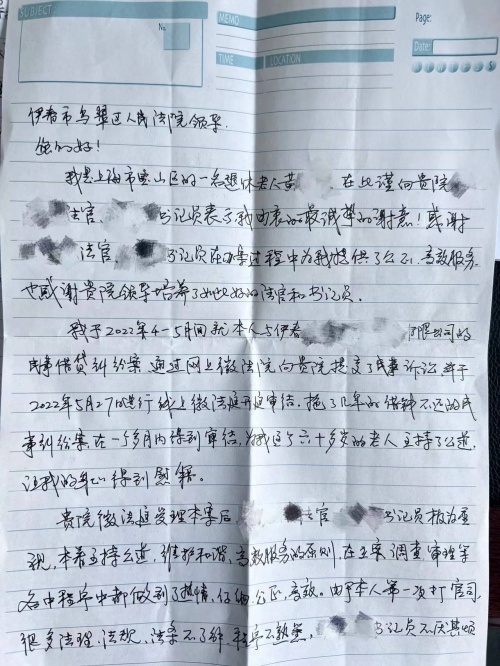 SUBJECT:
No.
MEMO
TIME
LOCATION
Page:
Date:
伊春市乌翠区人民法院领导.
您们好!
我是上海市宝山区的一名退休老人黄 在此谨向贵院
法官、 书记员表了我由衷的最诚挚的谢意! 感谢
法官、 书记员在办案过程中为我提供了公正、高效服务
也感谢贵院领导培养了如此好的法官和书记员。
我于2022年4-5月间就本人与伊春 有限公司的
民事借贷纠纷案,通过网上微法院向贵院提交了民事诉讼,并于
2022年5月27日进行线上微法庭开庭审结,拖了几年的借钱不还的民
事纠纷案,在一个多月内得到审结,为我这个六十多岁的老人主持了公道,
让我的身心得到慰藉。
贵院微法庭受理本案后, 法官 书记员极为重
视,本着主持公道,维护和谐、高效服务的原则,在立案、调查、审理等
各个程序中都做到了热情、仔细、公正、高效。由于本人第一次打官司,
很多法理、法规、法条不了解,程序不熟悉, 书记员不厌其烦